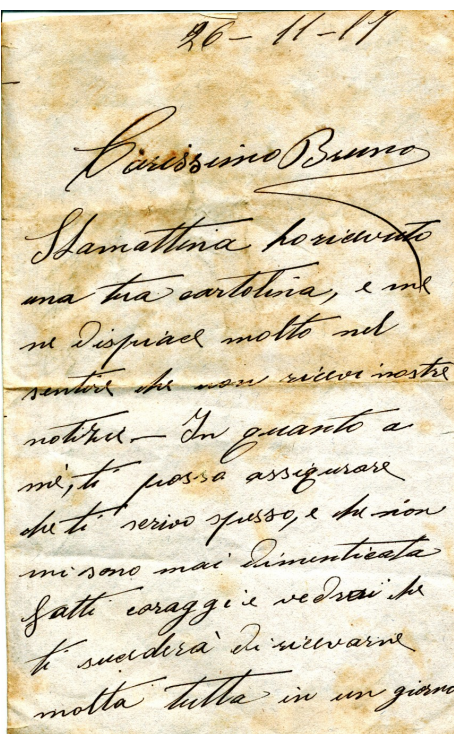 26 - 11 - 17
Carissimo Bruno
Stamattina ho ricevuto
una tua cartolina, e me
ne dispiace molto nel
sentire che non ricevi nostre
notizie - In quanto a
mè, ti posso assigurare
che ti scrivo spesso, e che non
mi sono mai dimenticata
fatti coraggi e vedrai che
ti succderà di ricevarne
molta tutta in un giorno